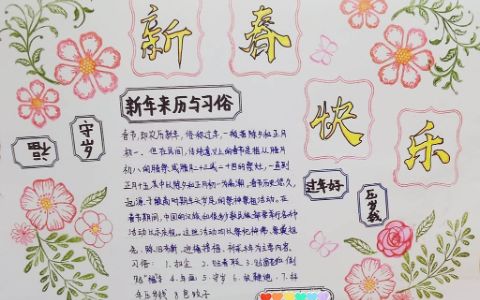 新春
快乐
新年来历与习俗
守岁
福
过年好
压岁钱
春节,即农历新年,俗称过年,一般指除夕和正月
初一。但在民间,传统意义上的春节是指从腊月
初八的腊祭或腊月二十三或二十四的祭灶,一直到
正月十五,其中以除夕和正月初一为高潮。春节历史悠久,
起源于殷商时期年头岁尾的祭神祭祖活动。在
春节期间,中国的汉族和很多少数民族都要举行各种
活动以示庆祝。这些活动均以祭祀神佛、祭奠祖
先、除旧布新、迎禧接福、祈求丰年为主要内容。
习俗:1.扫尘 2.贴春联 3.贴窗花和倒
贴"福"字 4.年画 5.守岁 6.放鞭炮 7.拜
年压岁钱 8.包饺子